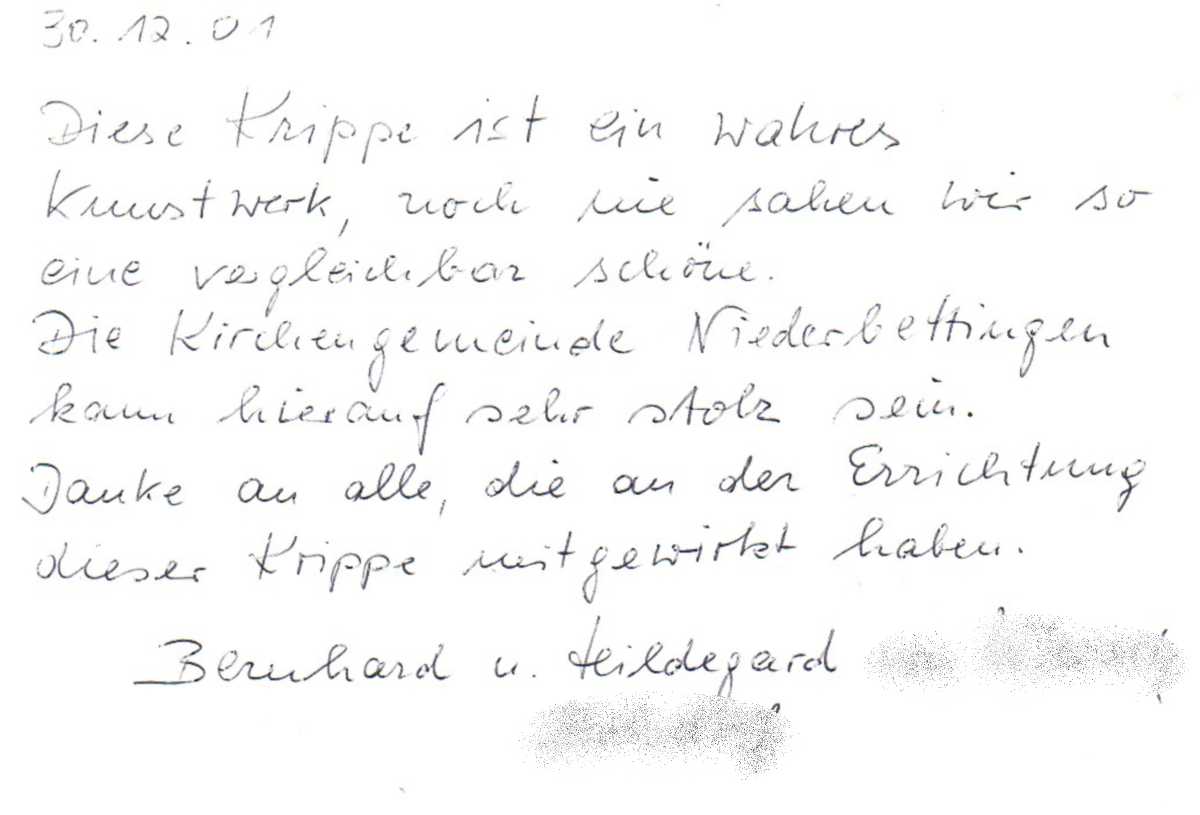 30.12.01
Diese Krippe ist ein wahres
Kunstwerk, noch nie sahen wir so
eine vergleichbar schöne.
Die Kirchengemeinde Niederbettingen
kann hierauf sehr stolz sein.
Danke an alle, die an der Errichtung
dieser Krippe mitgewirkt haben.
Bernhard u. Heildegard